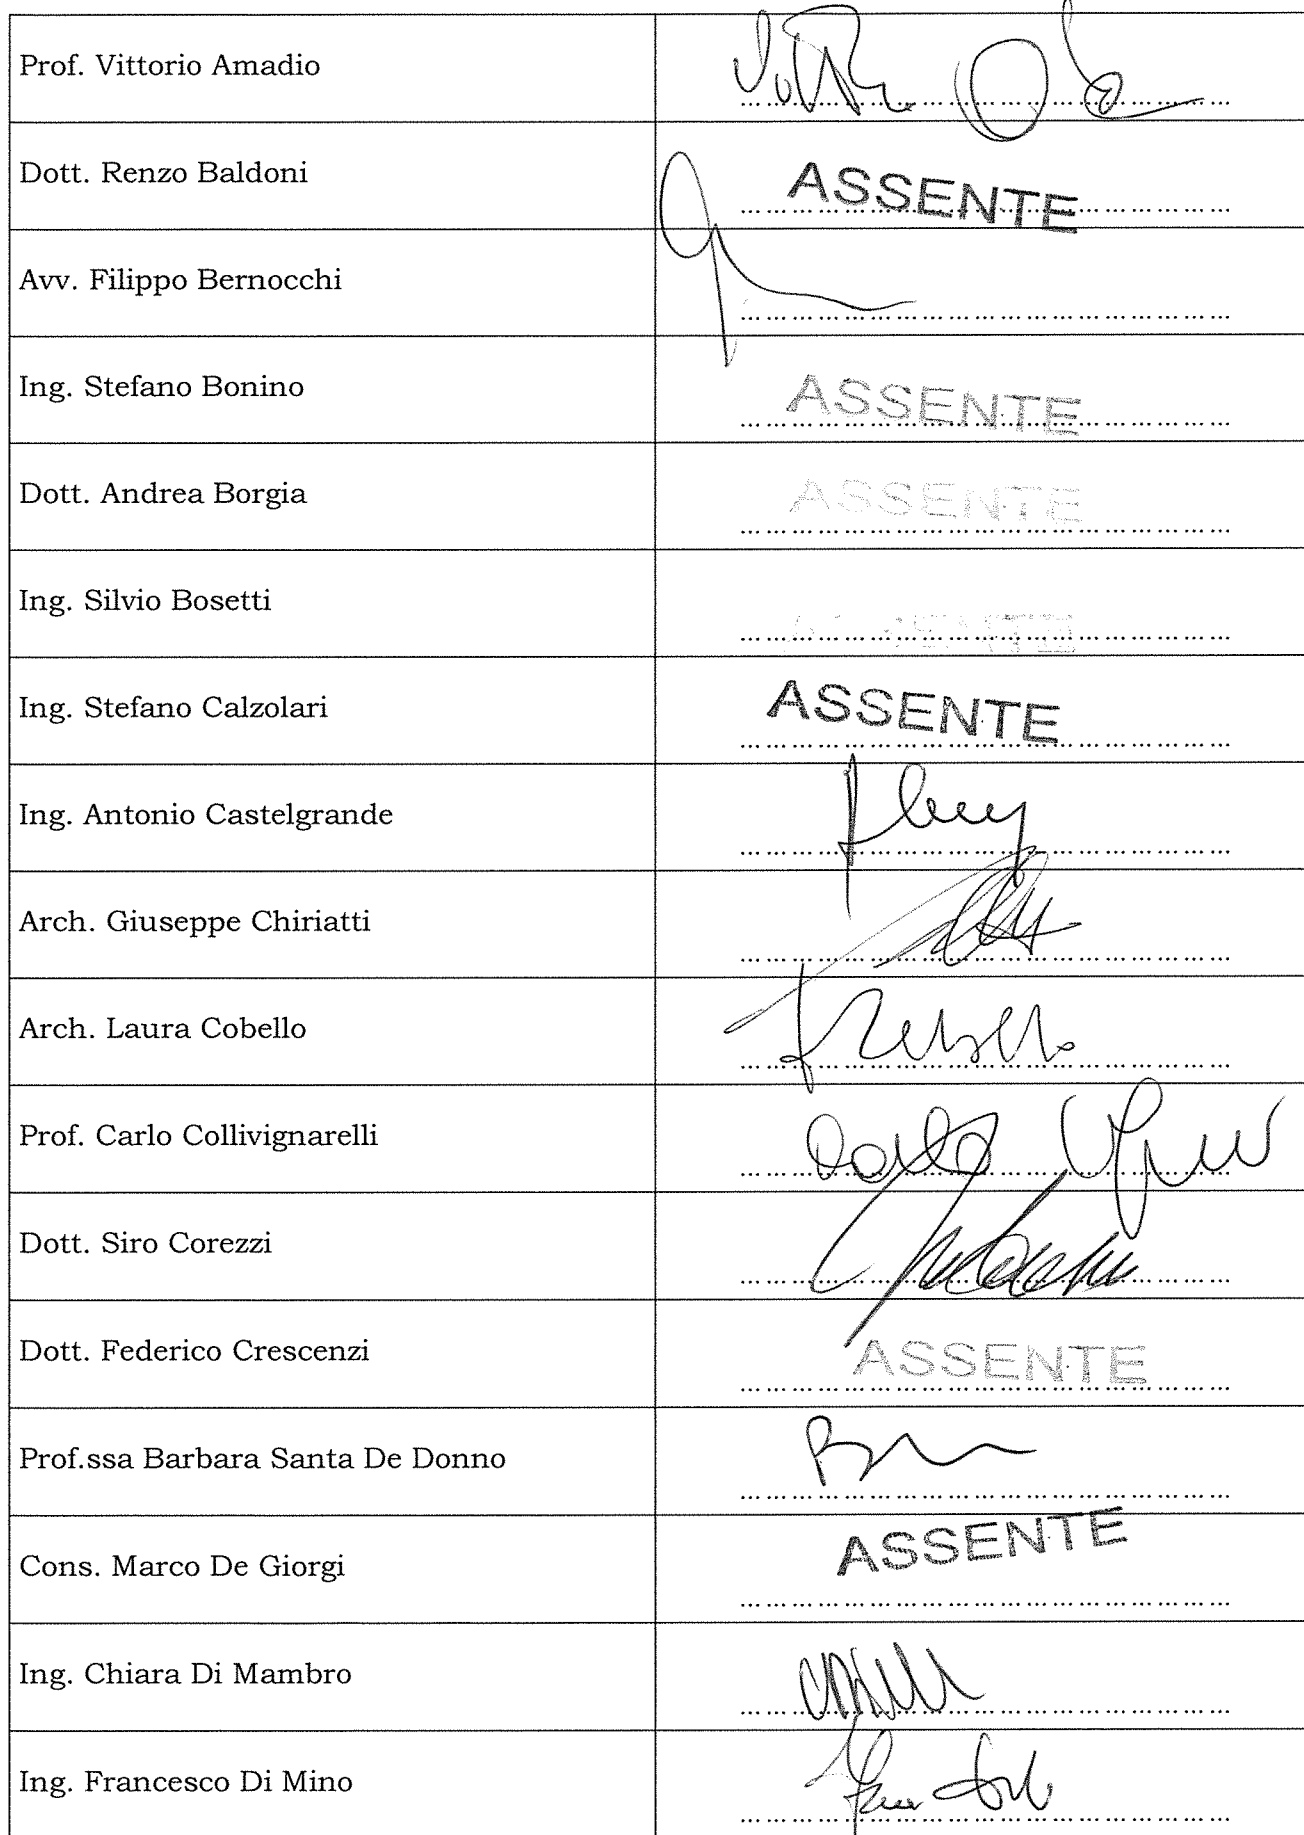 Prof. Vittorio Amadio
Dott. Renzo Baldoni
ASSENTE
Avv. Filippo Bernocchi
Ing. Stefano Bonino
ASSENTE
Dott. Andrea Borgia
ASSENTE
Ing. Silvio Bosetti
ASSENTE
Ing. Stefano Calzolari
ASSENTE
Ing. Antonio Castelgrande
Arch. Giuseppe Chiriatti
Arch. Laura Cobello
Prof. Carlo Collivignarelli
Dott. Siro Corezzi
Dott. Federico Crescenzi
ASSENTE
Prof.ssa Barbara Santa De Donno
Cons. Marco De Giorgi
ASSENTE
Ing. Chiara Di Mambro
Ing. Francesco Di Mino